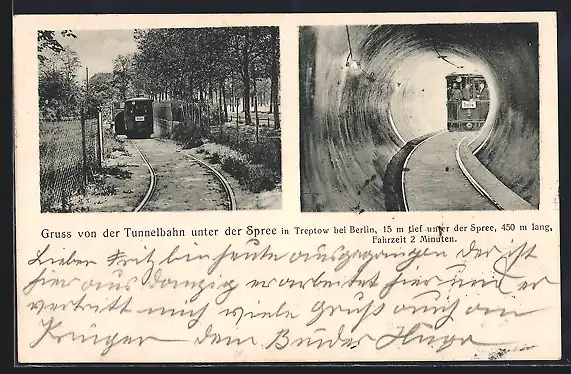 Gruss von der Tunnelbahn unter der Spree in Treptow bei Berlin, 15 m tief unter der Spree, 450 m lang,
Fahrzeit 2 Minuten.
Lieber Fritz bin heute ausgegangen der ist
hier aus Danzig er arbeitet hier und er
vertritt mich viele Gruß auch an
Krüger dem Bruder Hugo